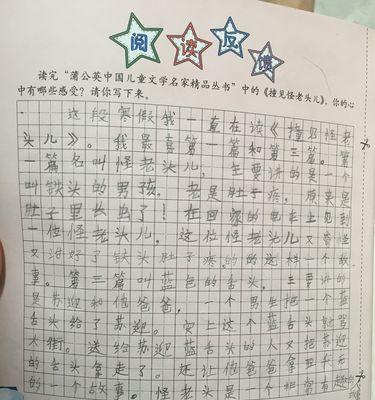 阅读反馈
读完“蒲公英中国儿童文学名家精品丛书”中的《撞见怪老头儿》，你的心
中有哪些感受？请你写下来。
这段寒假我一直在读《撞见怪老
头儿》。我最喜第一篇和第三篇。第
一篇名叫怪老头儿，主要讲的是一个
叫铁头的男孩。老是肚子疼，原来是
肚子里长虫了！在回姥的电车上见到
一位怪老头儿，这位怪老头儿又奇怪
又治好了铁头肚子疼的的这样一个故
事。第三篇叫蓝色的舌头，主要讲的
是苏迎和他爸爸，一个男生把一个蓝
舌头给了苏迎。实上这个蓝舌头就骂
大街。送给苏迎蓝舌头的人又把苏迎
的舌头拿走了。还让他爸爸拿
的一个故事。怪老头是一个非常有趣